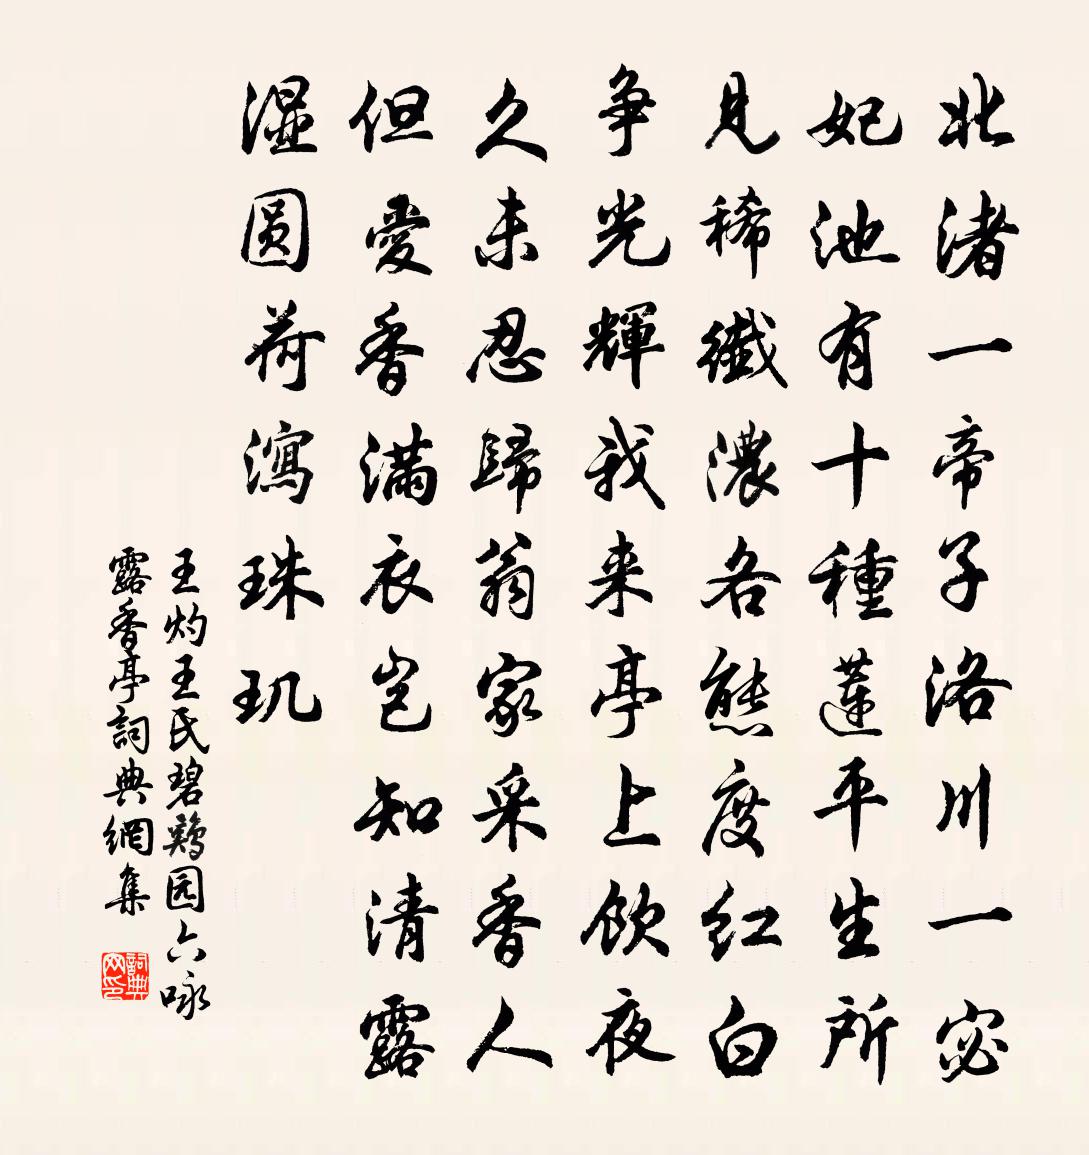 北渚一帝子洛川一宓
妃池有十種蓮平生所
見稀纖濃各態度红白
争光輝我来亭上飲夜
久未忍歸翁家采香人
但愛香滿衣岂知清露
湿圆荷瀉珠玑
王灼王氏碧鷄园六咏
露香亭詞典網集
詞典网印